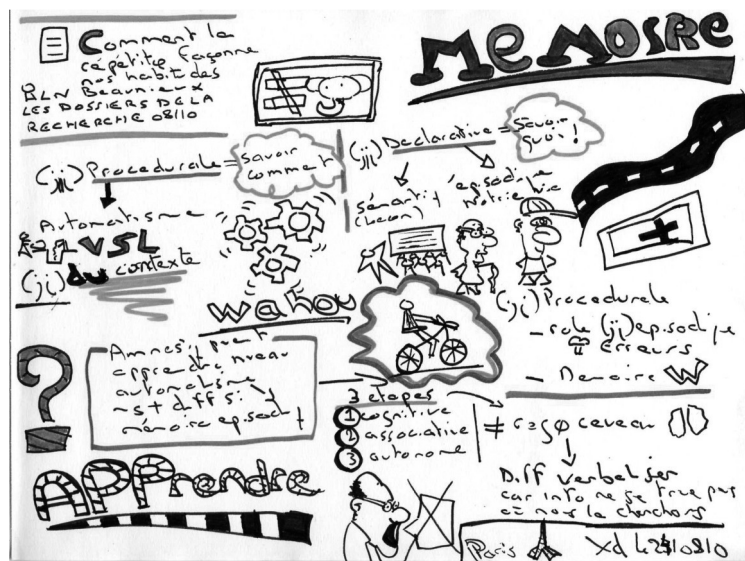 Comment la
répétitº façonne
nos habitudes
HLN Beaunieux
LES DOSSIERS DE LA
RECHERCHE 08/10
MEMOIRE
Procedurale =
savoir
comment
Declarative =
Savoir
quoi !
Automatisme
VSL
du contexte
sémantiq
(Lecon)
épisodique
wahou
Procedurale
- role episodiqe
Erreurs
- Demoire W
?
Amnesiq peut
apprendre nveau
automatisme
ms + diff si
mémoire episod
3 etapes
1 cognitive
2 associative
3 autonome
≠ cerveau
Diff verbaliser
car info ne se truve pas
où nous la cherchons
APPrendre
Paris
Xd